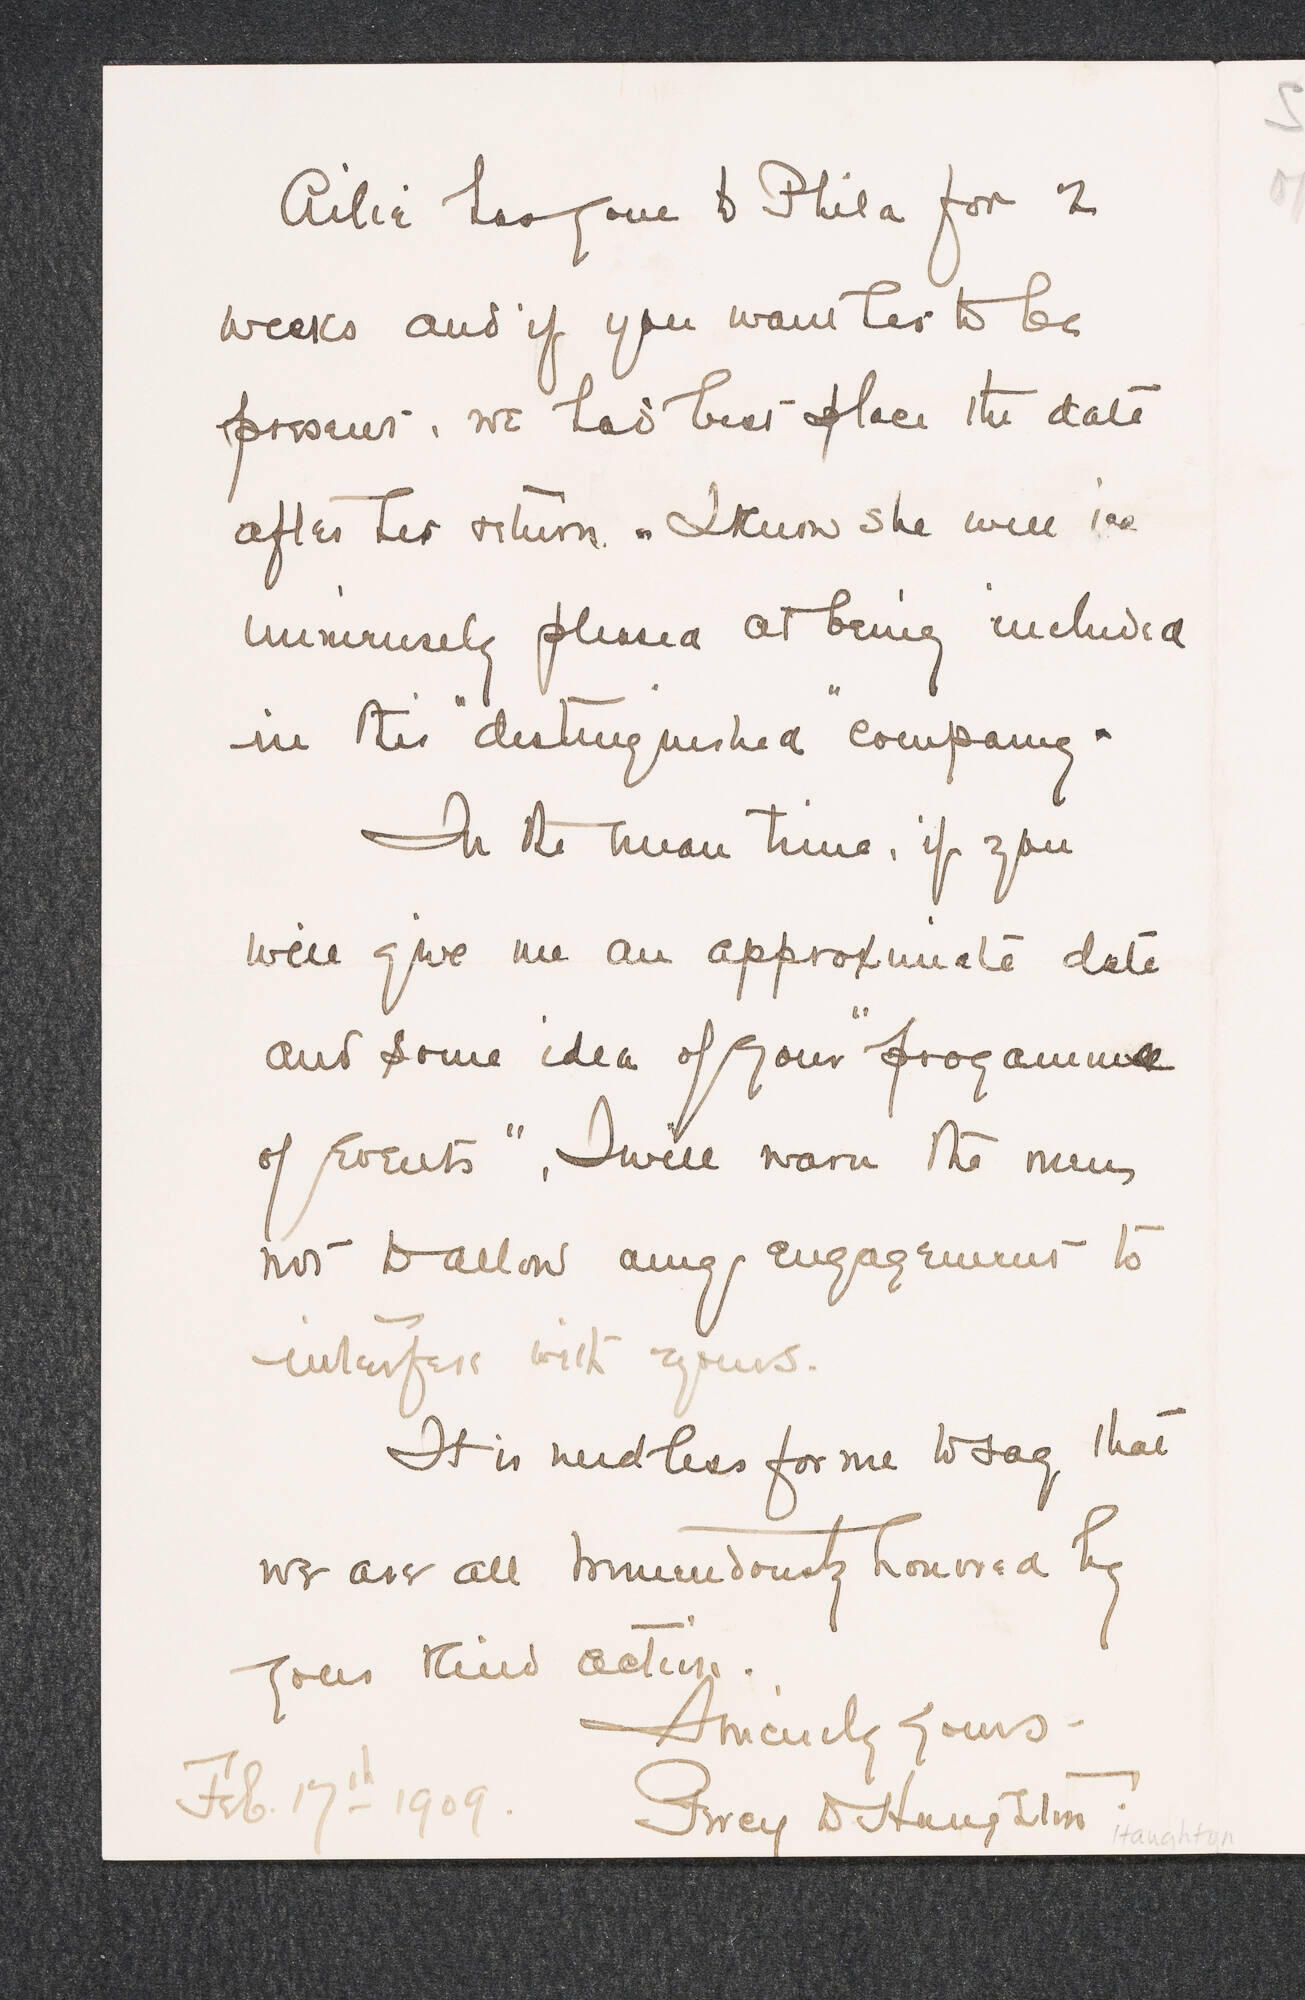 Ailie has gone to Phila for 2
weeks and if you want her to be
present, we had best place the date
after her return. - I know she will be
immensely pleased at being included
in this "distinguished" company.
In the mean time, if you
will give me an approximate date
and some idea of your "progamme
of events", I will warn the men
not to allow any engagement to
interfere with yours.
It is needless for me to say that
we are all tremendously honored by
your kind action.
Sincerely yours -
Percy D Haughton
Haughton
Feb. 17th - 1909.